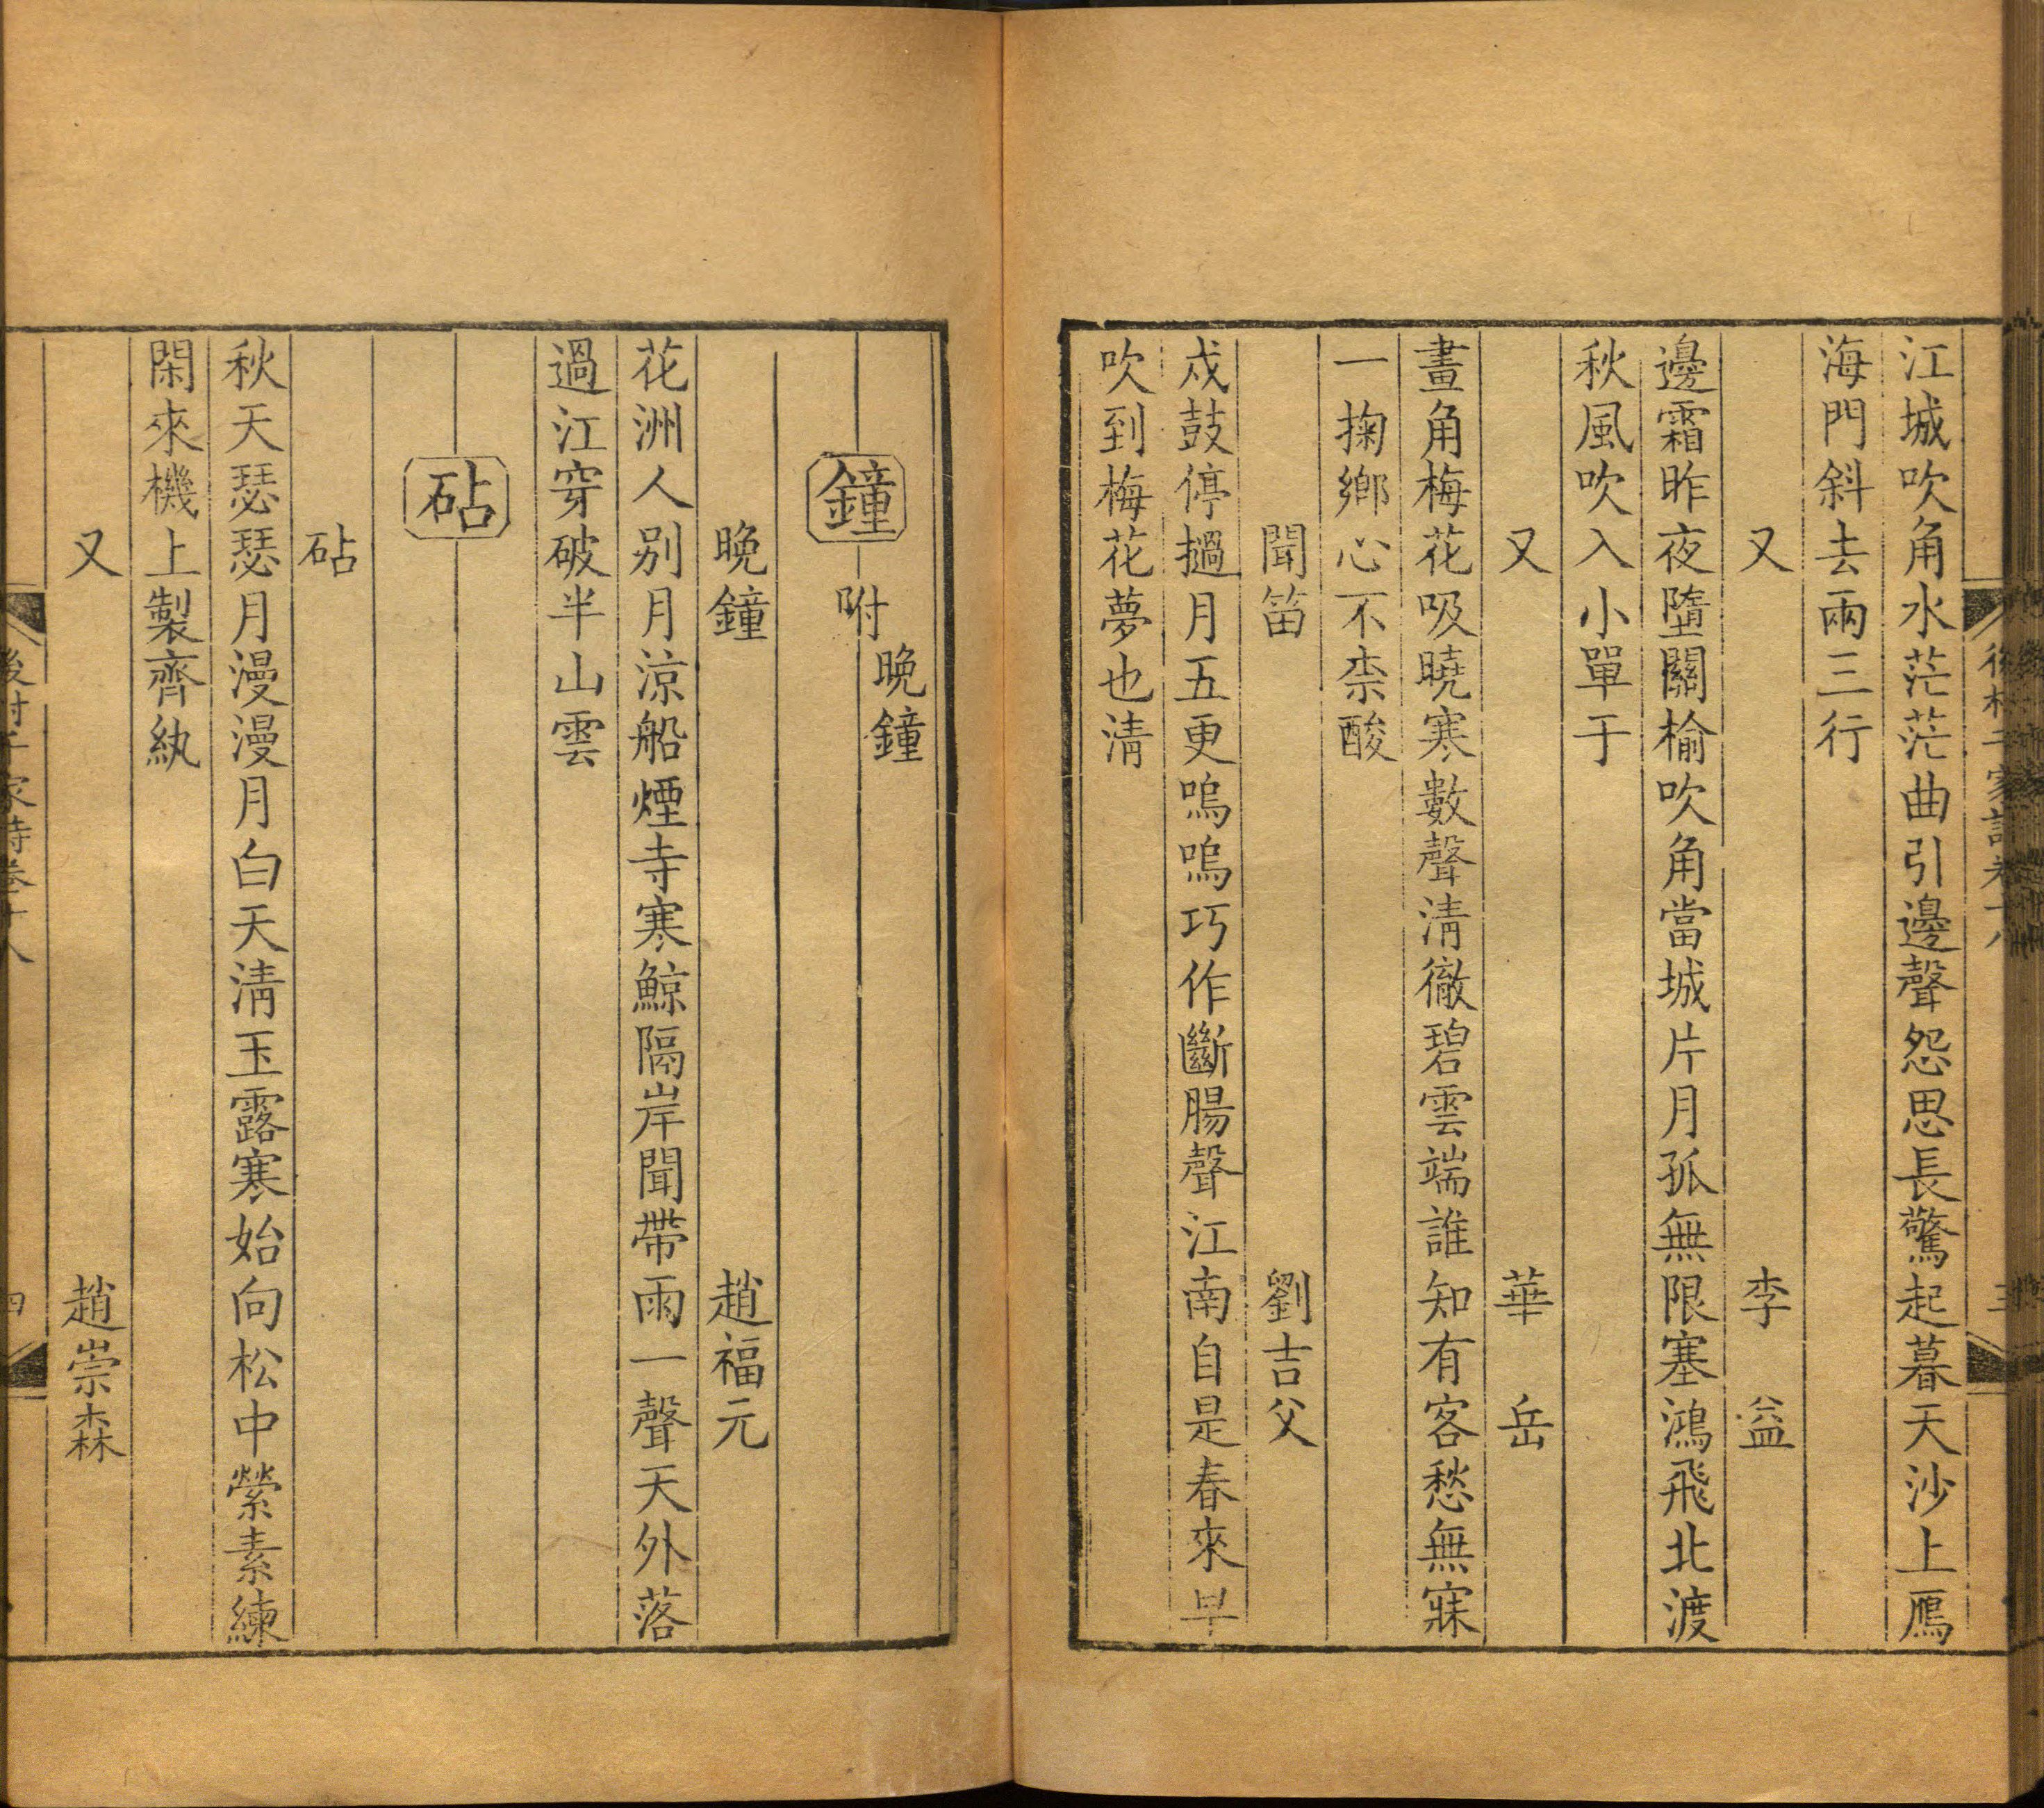 後村千家詩卷十八
三
江城吹角水茫茫曲引邊聲怨思長驚起暮天沙上鴈
海門斜去兩三行
又 李益
邊霜昨夜墮關榆吹角當城片月孤無限塞鴻飛北渡
秋風吹入小單于
又 華岳
畫角梅花吸曉寒數聲淸徹碧雲端誰知有客愁無寐
一掬鄉心不柰酸
聞笛 劉吉父
戍鼓停撾月五更嗚嗚巧作斷腸聲江南自是春來早
吹到梅花夢也淸
鐘 附 晚鐘
晚鐘 趙福元
花洲人别月涼船煙寺寒鯨隔岸聞帶雨一聲天外落
過江穿破半山雲
砧
砧
秋天瑟瑟月漫漫月白天淸玉露寒始向松中縈素練
閑來機上製齊紈
又 趙崇森
後村千家詩卷十八
四